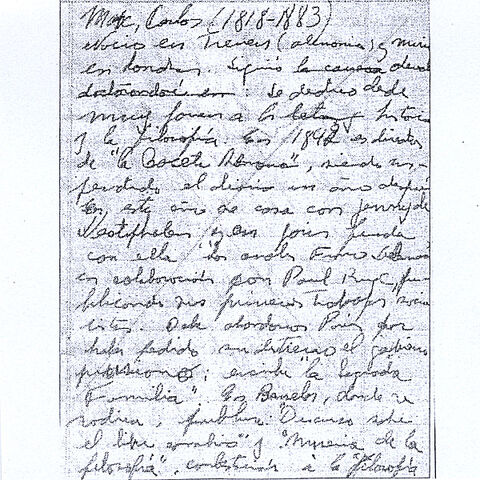 Marx, Carlos (1818-1883)
Nacio en Treveris (alemania) y muri
en londres. Siguio la carrera de
: Se dedico desde
muy joven a las letras y historia
y la filosofía En 1842 es director
de "la Gaceta Renana", siendo sus-
pendido el diario un año despues
En este año se casa con Jenny de
Westphalen y en paris funda
con ella los anales Franco
en colaboración con Paul Ruge, pu
blicando sus primeros trabajos socia
listas. Debe abandonar Paris por
haber pedido su destierro el gobierno
prusiano; escribe "la Sagrada
Familia". En Bruselas, donde se
radica, publica: "Discurso sobre
el libre cambio" y "Miseria de la
filosofía", contestación à la "filosofía